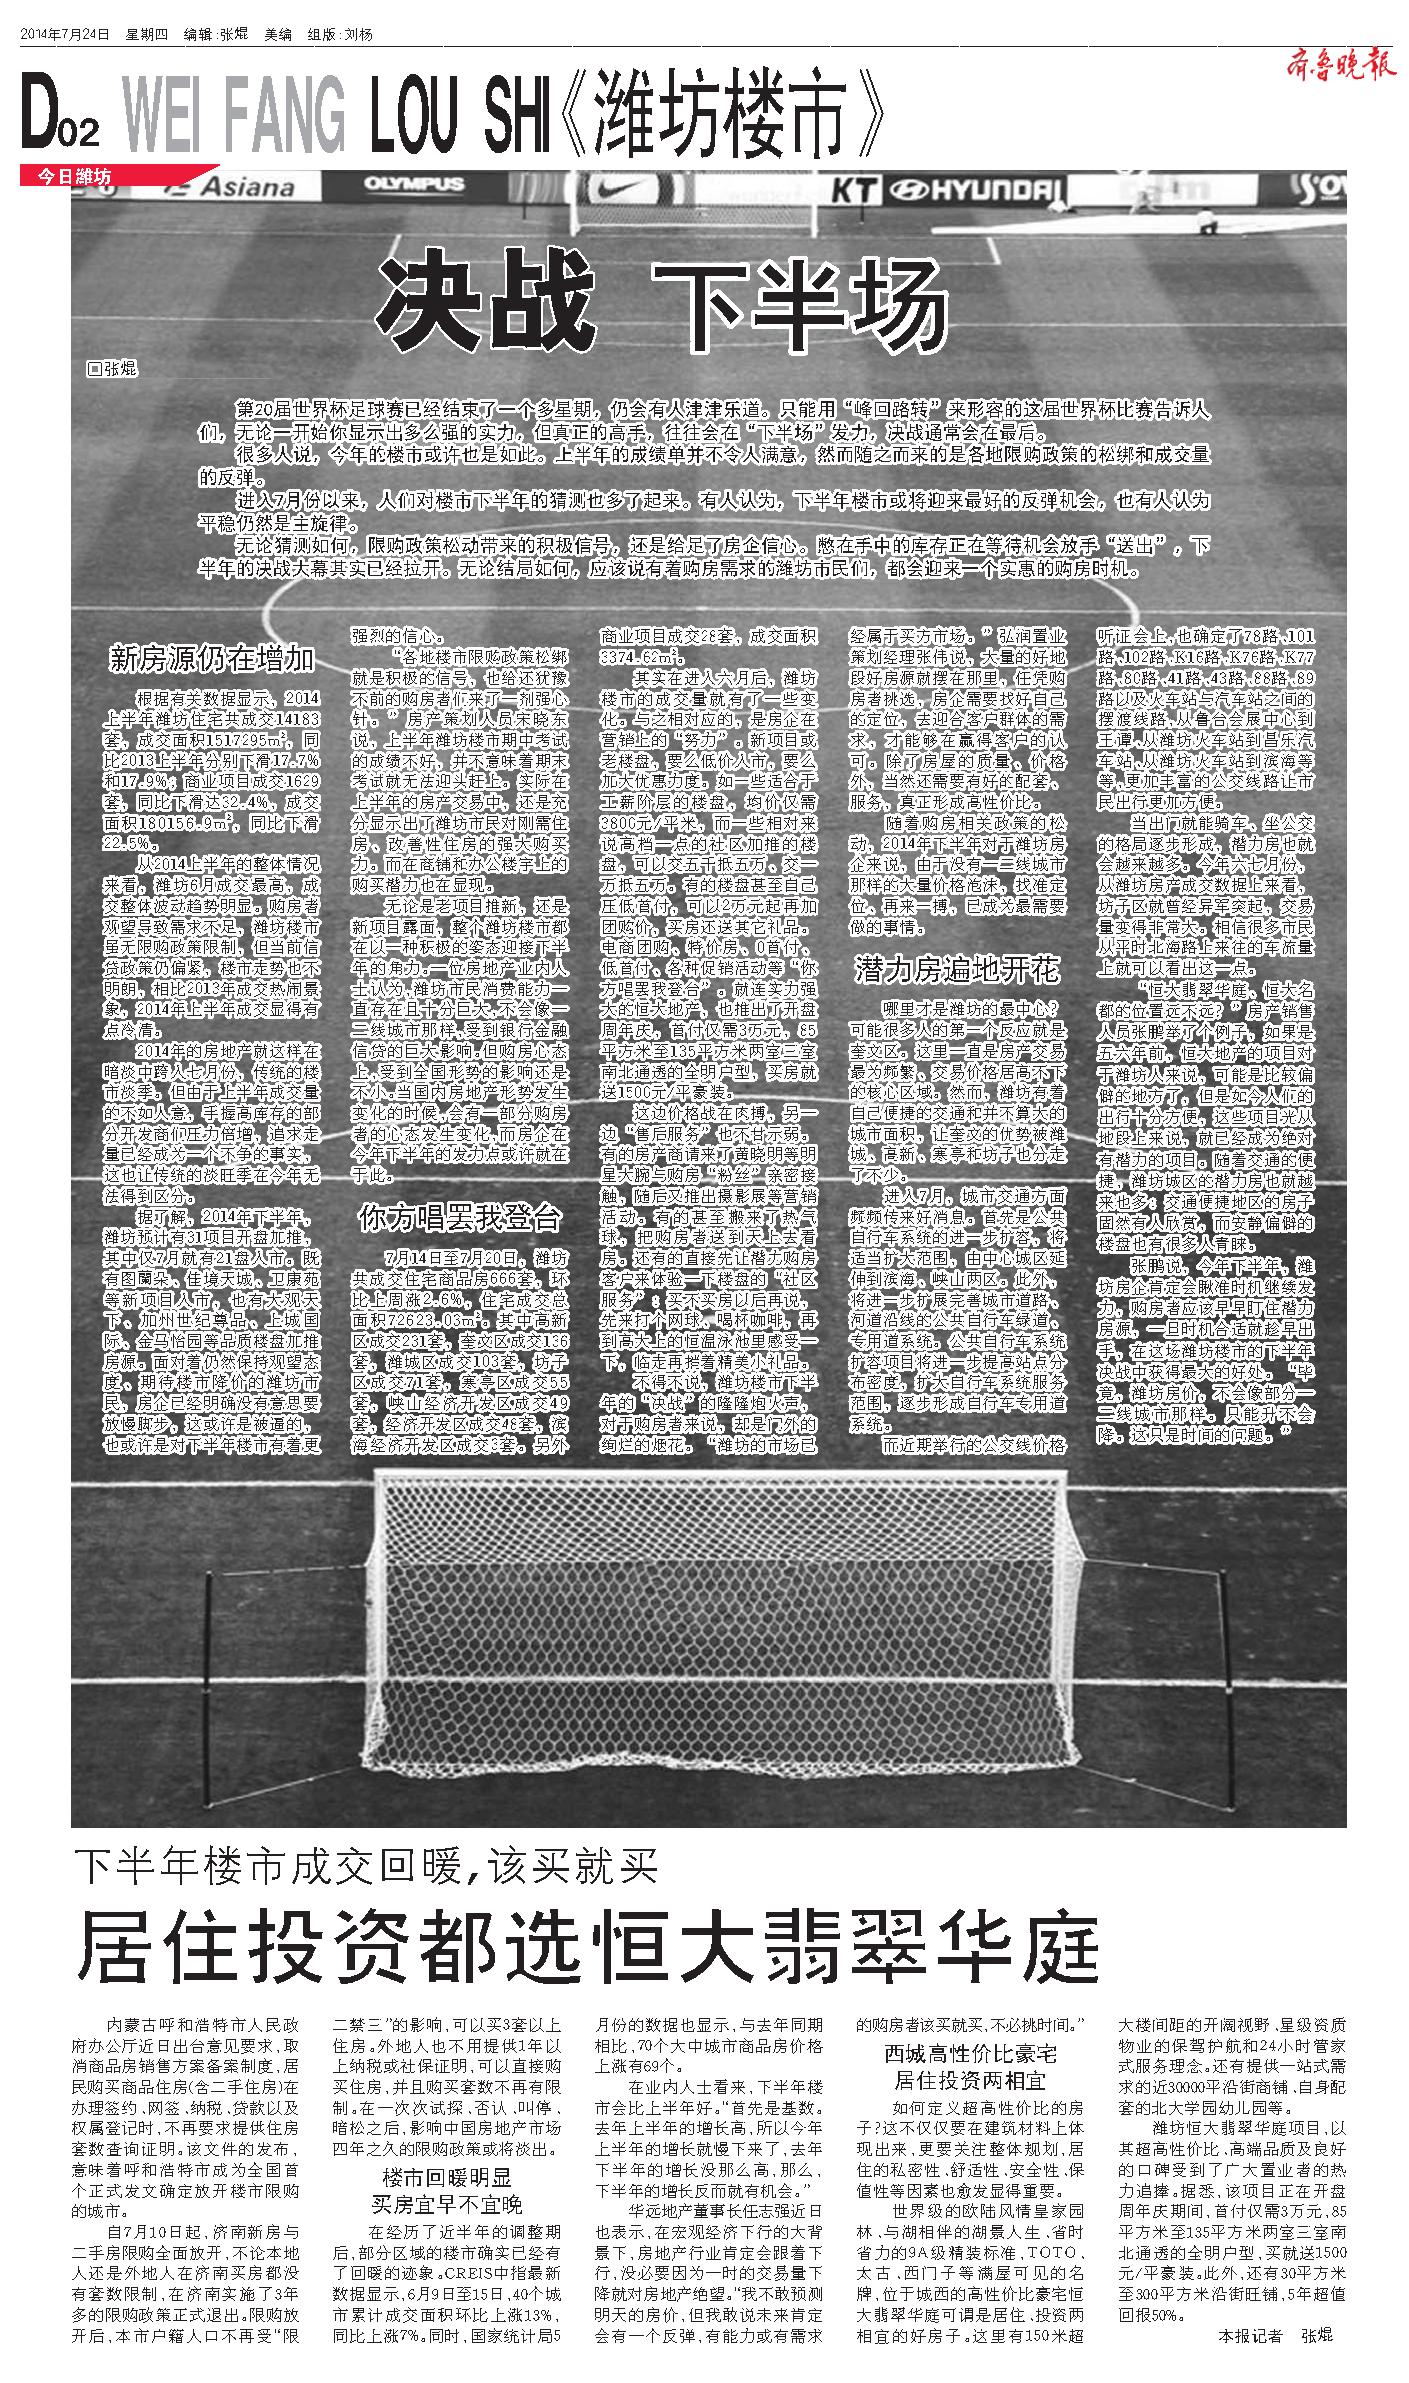 2014年7月24日 星期四 编辑:张焜 美编 组版:刘杨
齐鲁晚报
D02 WEI FANG LOU SHI《潍坊楼市》
今日潍坊
Asiana
OLYMPUS
KT
HYUNDAI
决战 下半场
□张焜
第20届世界杯足球赛已经结束了一个多星期，仍会有人津津乐道。只能用“峰回路转”来形容的这届世界杯比赛告诉人
们，无论一开始你显示出多么强的实力，但真正的高手，往往会在“下半场”发力，决战通常会在最后。
很多人说，今年的楼市或许也是如此。上半年的成绩单并不令人满意，然而随之而来的是各地限购政策的松绑和成交量
的反弹。
进入7月份以来，人们对楼市下半年的猜测也多了起来。有人认为，下半年楼市或将迎来最好的反弹机会，也有人认为
平稳仍然是主旋律。
无论猜测如何，限购政策松动带来的积极信号，还是给足了房企信心。憋在手中的库存正在等待机会放手“送出”，下
半年的决战大幕其实已经拉开。无论结局如何，应该说有着购房需求的潍坊市民们，都会迎来一个实惠的购房时机。
新房源仍在增加
根据有关数据显示，2014
上半年潍坊住宅共成交14183
套，成交面积1517295㎡，同
比2013上半年分别下滑17.7%
和17.9%；商业项目成交1629
套，同比下滑达32.4%，成交
面积180156.9㎡，同比下滑
22.5%。
从2014上半年的整体情况
来看，潍坊6月成交最高，成
交整体波动趋势明显。购房者
观望导致需求不足，潍坊楼市
虽无限购政策限制，但当前信
贷政策仍偏紧，楼市走势也不
明朗，相比2013年成交热闹景
象，2014年上半年成交显得有
点冷清。
2014年的房地产就这样在
暗淡中跨入七月份，传统的楼
市淡季。但由于上半年成交量
的不如人意，手握高库存的部
分开发商们压力倍增，追求走
量已经成为一个不争的事实，
这也让传统的淡旺季在今年无
法得到区分。
据了解，2014年下半年，
潍坊预计有31项目开盘加推，
其中仅7月就有21盘入市。既
有图蘭朵、佳境天城、卫康苑
等新项目入市，也有大观天
下、加州世纪尊品、上城国
际、金马怡园等品质楼盘加推
房源。面对着仍然保持观望态
度、期待楼市降价的潍坊市
民，房企已经明确没有意思要
放慢脚步，这或许是被逼的，
也或许是对下半年楼市有着更
强烈的信心。
“各地楼市限购政策松绑
就是积极的信号，也给还犹豫
不前的购房者们来了一剂强心
针。”房产策划人员宋晓东
说，上半年潍坊楼市期中考试
的成绩不好，并不意味着期末
考试就无法迎头赶上。实际在
上半年的房产交易中，还是充
分显示出了潍坊市民对刚需住
房、改善性住房的强大购买
力。而在商铺和办公楼宇上的
购买潜力也在显现。
无论是老项目推新，还是
新项目露面，整个潍坊楼市都
在以一种积极的姿态迎接下半
年的角力。一位房地产业内人
士认为，潍坊市民消费能力一
直存在且十分巨大，不会像一
二线城市那样，受到银行金融
信贷的巨大影响。但购房心态
上，受到全国形势的影响还是
不小。当国内房地产形势发生
变化的时候，会有一部分购房
者的心态发生变化，而房企在
今年下半年的发力点或许就在
于此。
你方唱罢我登台
7月14日至7月20日，潍坊
共成交住宅商品房666套，环
比上周涨2.6%，住宅成交总
面积72623.03㎡。其中高新
区成交231套，奎文区成交136
套，潍城区成交103套，坊子
区成交71套，寒亭区成交55
套，峡山经济开发区成交49
套，经济开发区成交48套，滨
海经济开发区成交3套。另外
商业项目成交28套，成交面积
3374.62㎡。
其实在进入六月后，潍坊
楼市的成交量就有了一些变
化。与之相对应的，是房企在
营销上的“努力”。新项目或
老楼盘，要么低价入市，要么
加大优惠力度。如一些适合于
工薪阶层的楼盘，均价仅需
3800元/平米，而一些相对来
说高档一点的社区加推的楼
盘，可以交五千抵五万、交一
万抵五万。有的楼盘甚至自己
压低首付，可以2万元起再加
团购价，买房还送其它礼品。
电商团购、特价房、0首付、
低首付、各种促销活动等“你
方唱罢我登台”。就连实力强
大的恒大地产，也推出了开盘
周年庆，首付仅需3万元，85
平方米至135平方米两室三室
南北通透的全明户型，买房就
送1500元/平豪装。
这边价格战在肉搏，另一
边“售后服务”也不甘示弱。
有的房产商请来了黄晓明等明
星大腕与购房“粉丝”亲密接
触，随后又推出摄影展等营销
活动。有的甚至搬来了热气
球，把购房者送到天上去看
房。还有的直接先让潜力购房
客户来体验一下楼盘的“社区
服务”：买不买房以后再说，
先来打个网球、喝杯咖啡，再
到高大上的恒温泳池里感受一
下，临走再捎着精美小礼品。
不得不说，潍坊楼市下半
年的“决战”的隆隆炮火声，
对于购房者来说，却是门外的
绚烂的烟花。“潍坊的市场已
经属于买方市场。”弘润置业
策划经理张伟说，大量的好地
段好房源就摆在那里，任凭购
房者挑选，房企需要找好自己
的定位，去迎合客户群体的需
求，才能够在赢得客户的认
可。除了房屋的质量、价格
外，当然还需要有好的配套、
服务，真正形成高性价比。
随着购房相关政策的松
动，2014年下半年对于潍坊房
企来说，由于没有一二线城市
那样的大量价格泡沫，找准定
位、再来一搏，已成为最需要
做的事情。
潜力房遍地开花
哪里才是潍坊的最中心？
可能很多人的第一个反应就是
奎文区。这里一直是房产交易
最为频繁、交易价格居高不下
的核心区域。然而，潍坊有着
自己便捷的交通和并不算大的
城市面积，让奎文的优势被潍
城、高新、寒亭和坊子也分走
了不少。
进入7月，城市交通方面
频频传来好消息。首先是公共
自行车系统的进一步扩容，将
适当扩大范围，由中心城区延
伸到滨海、峡山两区。此外，
将进一步扩展完善城市道路、
河道沿线的公共自行车绿道、
专用道系统。公共自行车系统
扩容项目将进一步提高站点分
布密度，扩大自行车系统服务
范围，逐步形成自行车专用道
系统。
而近期举行的公交线价格
听证会上，也确定了78路、101
路、102路、K16路、K76路、K77
路、80路、41路、43路、88路、89
路以及火车站与汽车站之间的
摆渡线路、从鲁台会展中心到
王谭、从潍坊火车站到昌乐汽
车站、从潍坊火车站到滨海等
等，更加丰富的公交线路让市
民出行更加方便。
当出门就能骑车、坐公交
的格局逐步形成，潜力房也就
会越来越多。今年六七月份，
从潍坊房产成交数据上来看，
坊子区就曾经异军突起，交易
量变得非常大。相信很多市民
从平时北海路上来往的车流量
上就可以看出这一点。
“恒大翡翠华庭、恒大名
都的位置远不远？”房产销售
人员张鹏举了个例子，如果是
五六年前，恒大地产的项目对
于潍坊人来说，可能是比较偏
僻的地方了，但是如今人们的
出行十分方便，这些项目光从
地段上来说，就已经成为绝对
有潜力的项目。随着交通的便
捷，潍坊城区的潜力房也就越
来也多：交通便捷地区的房子
固然有人欣赏，而安静偏僻的
楼盘也有很多人青睐。
张鹏说，今年下半年，潍
坊房企肯定会瞅准时机继续发
力，购房者应该早早盯住潜力
房源，一旦时机合适就趁早出
手，在这场潍坊楼市的下半年
决战中获得最大的好处。“毕
竟，潍坊房价，不会像部分一
二线城市那样。只能升不会
降。这只是时间的问题。”
下半年楼市成交回暖，该买就买
居住投资都选恒大翡翠华庭
内蒙古呼和浩特市人民政
府办公厅近日出台意见要求，取
消商品房销售方案备案制度，居
民购买商品住房(含二手住房)在
办理签约、网签、纳税、贷款以及
权属登记时，不再要求提供住房
套数查询证明。该文件的发布，
意味着呼和浩特市成为全国首
个正式发文确定放开楼市限购
的城市。
自7月10日起，济南新房与
二手房限购全面放开，不论本地
人还是外地人在济南买房都没
有套数限制，在济南实施了3年
多的限购政策正式退出。限购放
开后，本市户籍人口不再受“限
二禁三”的影响，可以买3套以上
住房。外地人也不用提供1年以
上纳税或社保证明，可以直接购
买住房，并且购买套数不再有限
制。在一次次试探、否认、叫停、
暗松之后，影响中国房地产市场
四年之久的限购政策或将淡出。
楼市回暖明显
买房宜早不宜晚
在经历了近半年的调整期
后，部分区域的楼市确实已经有
了回暖的迹象。CREIS中指最新
数据显示，6月9日至15日，40个城
市累计成交面积环比上涨13%，
同比上涨7%。同时，国家统计局5
月份的数据也显示，与去年同期
相比，70个大中城市商品房价格
上涨有69个。
在业内人士看来，下半年楼
市会比上半年好。“首先是基数。
去年上半年的增长高，所以今年
上半年的增长就慢下来了，去年
下半年的增长没那么高，那么，
下半年的增长反而就有机会。”
华远地产董事长任志强近日
也表示，在宏观经济下行的大背
景下，房地产行业肯定会跟着下
行，没必要因为一时的交易量下
降就对房地产绝望。“我不敢预测
明天的房价，但我敢说未来肯定
会有一个反弹，有能力或有需求
的购房者该买就买，不必挑时间。”
西城高性价比豪宅
居住投资两相宜
如何定义超高性价比的房
子？这不仅仅要在建筑材料上体
现出来，更要关注整体规划，居
住的私密性、舒适性、安全性、保
值性等因素也愈发显得重要。
世界级的欧陆风情皇家园
林、与湖相伴的湖景人生、省时
省力的9A级精装标准，TOTO、
太古、西门子等满屋可见的名
牌，位于城西的高性价比豪宅恒
大翡翠华庭可谓是居住、投资两
相宜的好房子。这里有150米超
大楼间距的开阔视野、星级资质
物业的保驾护航和24小时管家
式服务理念。还有提供一站式需
求的近30000平沿街商铺、自身配
套的北大学园幼儿园等。
潍坊恒大翡翠华庭项目，以
其超高性价比、高端品质及良好
的口碑受到了广大置业者的热
力追捧。据悉，该项目正在开盘
周年庆期间，首付仅需3万元，85
平方米至135平方米两室三室南
北通透的全明户型，买就送1500
元/平豪装。此外，还有30平方米
至300平方米沿街旺铺，5年超值
回报50%。
本报记者 张焜